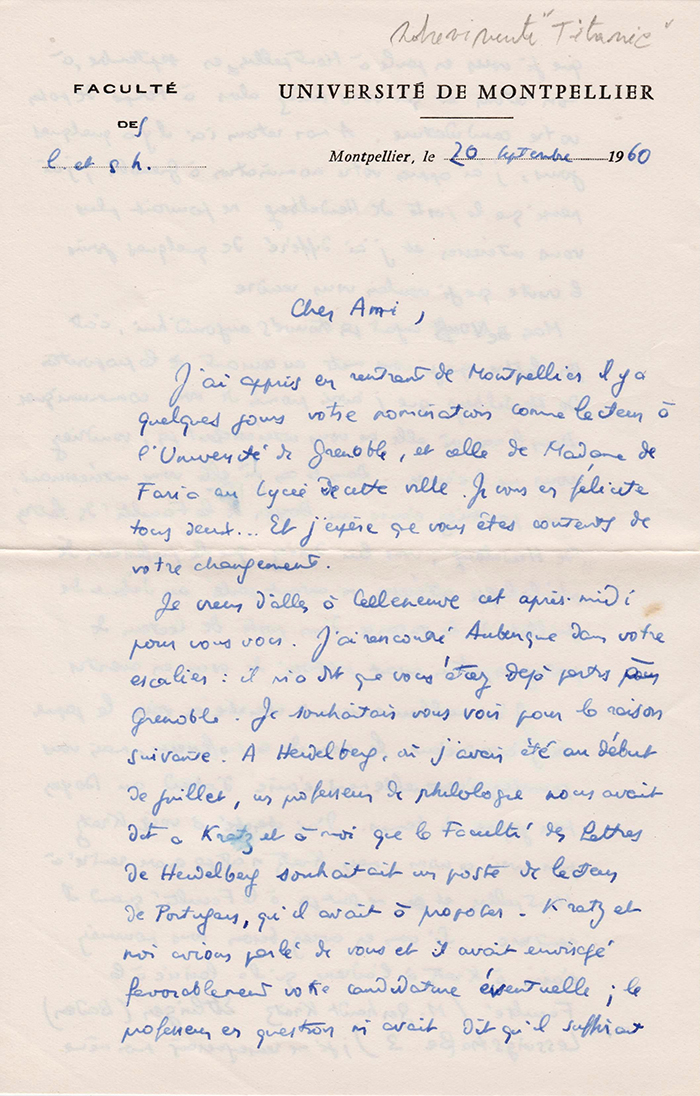 "Titanic"
FACULTÉ
DES
l. et s h.
UNIVERSITÉ DE MONTPELLIER
Montpellier, le 20 septembre 1960
Cher Ami,
J'ai appris en rentrant de Montpellier il y a
quelques jours votre nomination comme lecteur à
l'Université de Grenoble, et celle de Madame de
Faria au Lycée de cette ville. Je vous en félicite
tous deux... Et j'espère que vous êtes contents de
votre changement.
Je viens d'aller à Celleneuve cet après-midi
pour vous voir. J'ai rencontré Aubenque dans votre
escalier : il m'a dit que vous étiez déjà partis pour
Grenoble. Je souhaitais vous voir pour la raison
suivante. A Heidelberg, où j'avais été au début
de juillet, un professeur de philologie nous avait
dit à Kratz et à moi que la Faculté des Lettres
de Heidelberg souhaitait un poste de lecteur
de Portugais, qu'il avait à proposer. Kratz et
moi avions parlé de vous et il avait envisagé
favorablement votre candidature éventuelle ; le
professeur en question m'avait dit qu'il suffirait